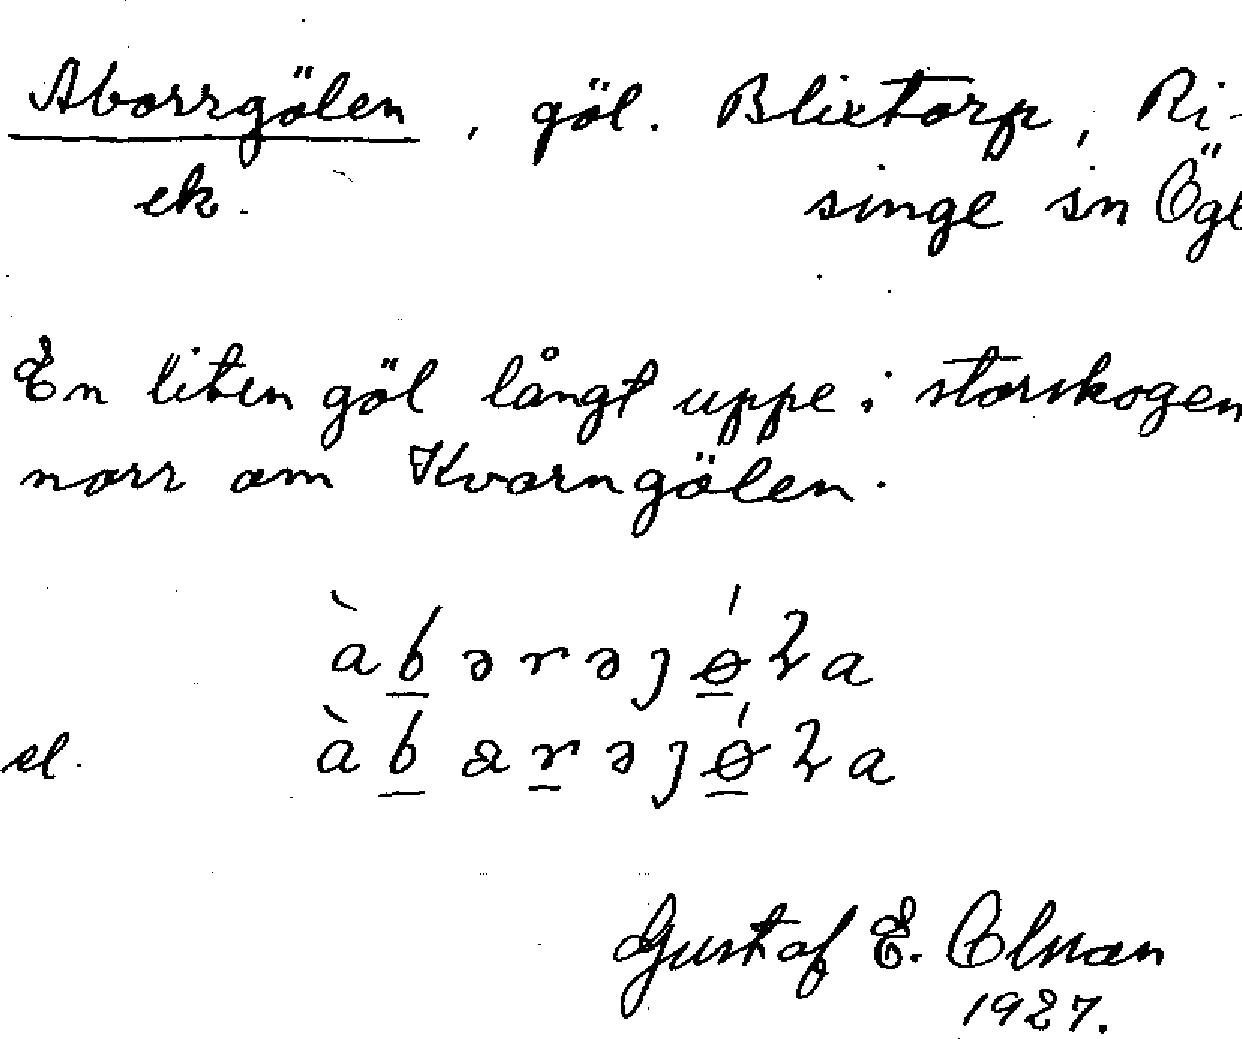 Aborrgölen, göl. Blixtorp, Ri-
ek. singe sn Ögl
En liten göl långt uppe i storskogen
norr om Kvarngölen.
àbərəȷǿɬa
el. àbarəȷǿɬa
Gustaf E.
1927.